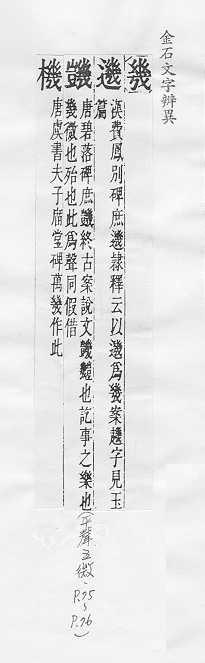 金石文字辨異
幾
𨘷
漢費鳳別碑庶𨘷隸釋云以𨘷為幾案𨘷字見玉
篇
𧰙
唐碧落碑庶𧰙終古案說文𧰙也訖事之樂也
幾微也殆也此為聲同假借
機
唐虞書夫子廟堂碑萬幾作此
(平聲五微、P.75~P.76)